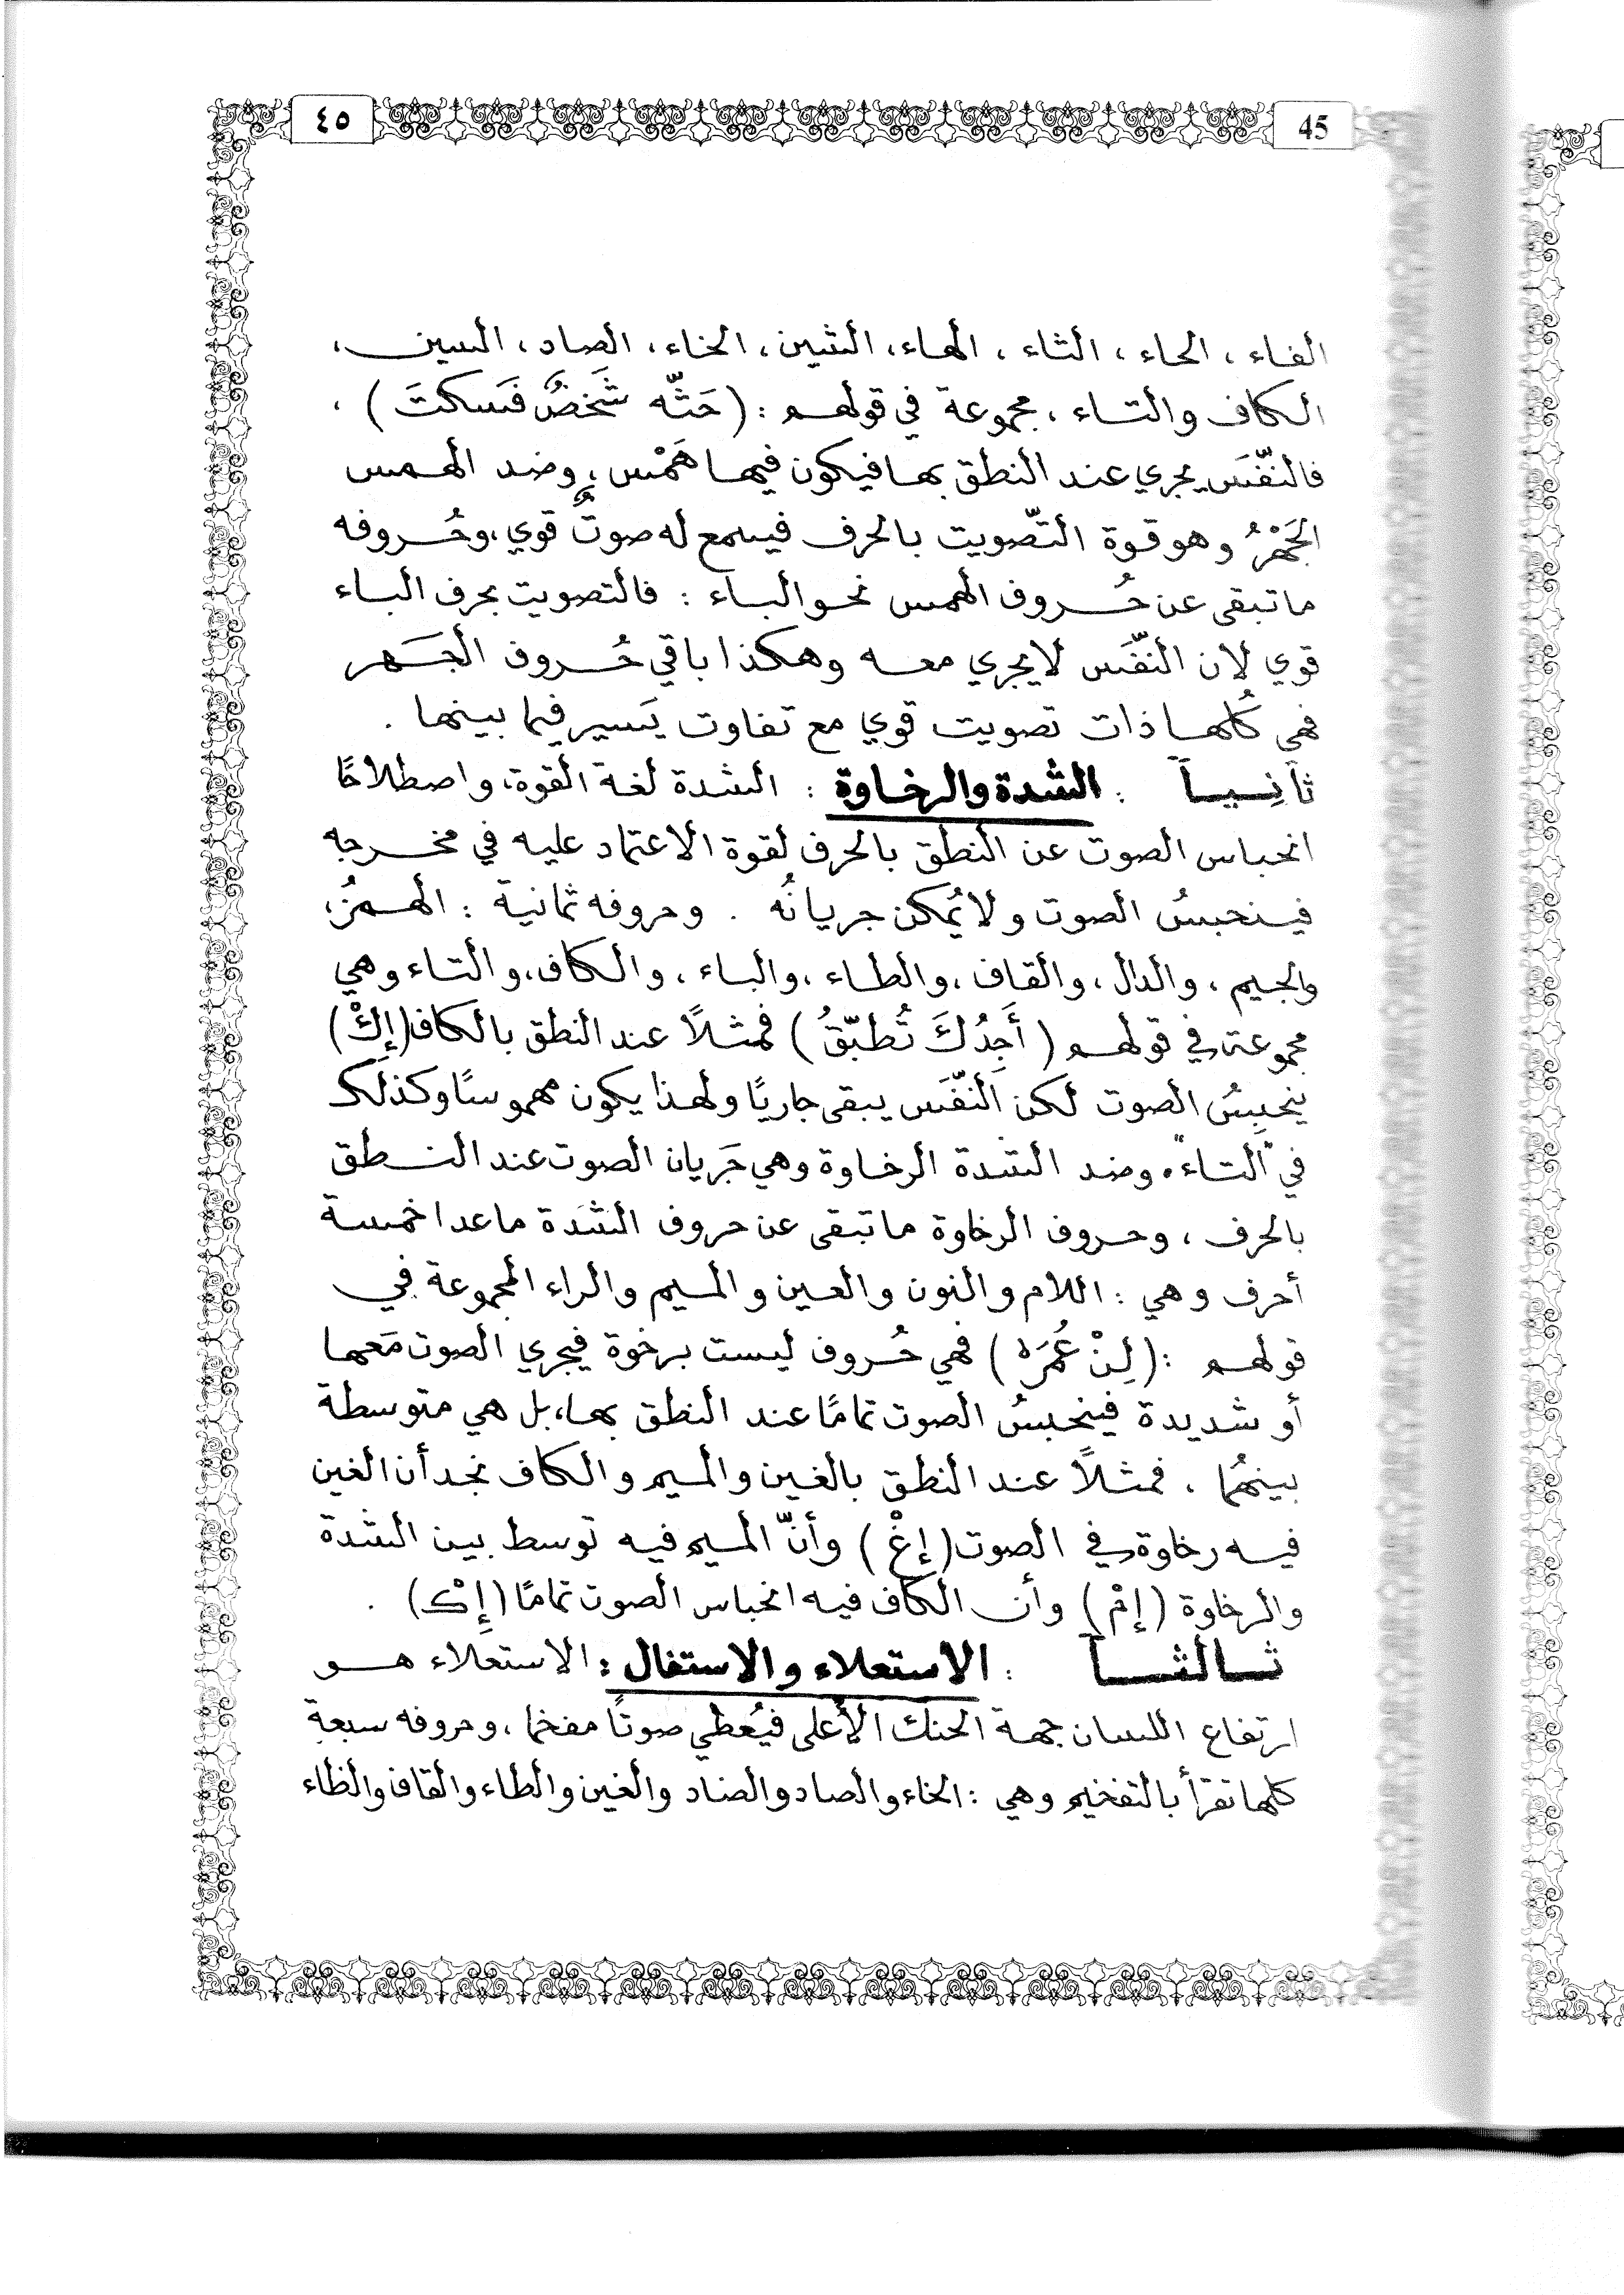 ٤٥ 45
الفاء ، الحاء ، الثاء ، الهاء ، الشين ، الخاء ، الصاد ، السين ،
الكاف والتاء ، مجموعة في قولهم : ( حَثّه شَخصٌ فَسكتَ ) .
فالنّفَس يجري عند النطق بها فيكون فيها هَمْس ، وضد الهمس
الجَهْرُ وهو قوة التّصويت بالحرف فيسمع له صوتٌ قوي ، وحُروفه
ما تبقى عن حُروف الهمس نحو الباء : فالتصويت بحرف الباء
قوي لان النّفَس لا يجري معه وهكذا باقي حُروف الجَهر
فهي كُلها ذات تصويت قوي مع تفاوت يَسير فيما بينها .
ثانياً : الشدة والرخاوة : الشدة لغة القوة، واصطلاحًا
انحباس الصوت عن النطق بالحرف لقوة الاعتماد عليه في مخرجه
فينحبسُ الصوت ولا يُمكن جريانُه . وحروفه ثمانية : الهمز ،
والجيم ، والدال ، والقاف ، والطاء ، والباء ، والكاف ، والتاء وهي
مجموعة في قولهم ( أَجِدُكَ تُطبّقُ ) فمثلاً عند النطق بالكاف (إكْ)
ينحبِسُ الصوت لكن النّفَس يبقى جاريًا ولهذا يكون مهموسًا وكذلك
في "التاء". وضد الشدة الرخاوة وهي جَريان الصوت عند النطق
بالحرف ، وحروف الرخاوة ما تبقى عن حروف الشدة ماعدا خمسة
أحرف وهي : اللام والنون والعين والميم والراء المجموعة في
قولهم : ( لِنْ عُمَره ) فهي حُروف ليست برخوة فيجري الصوت مَعها
أو شديدة فينحبسُ الصوت تمامًا عند النطق بها، بل هي متوسطة
بينهُما . فمثلاً عند النطق بالغين والميم والكاف نجد أن الغين
فيه رخاوة في الصوت ( إغْ ) وأنّ الميم فيه توسط بين الشدة
والرخاوة ( إمْ ) وأن الكاف فيه انحباس الصوت تمامًا ( إكْ ) .
ثالثاً : الاستعلاء والاستفال : الاستعلاء هو
ارتفاع اللسان جهة الحنك الأعلى فيُعطي صوتًا مفخما ، وحروفه سبعة
كلها تقرأ بالتفخيم وهي : الخاء والصاد والضاد والغين والطاء والقاف والظاء